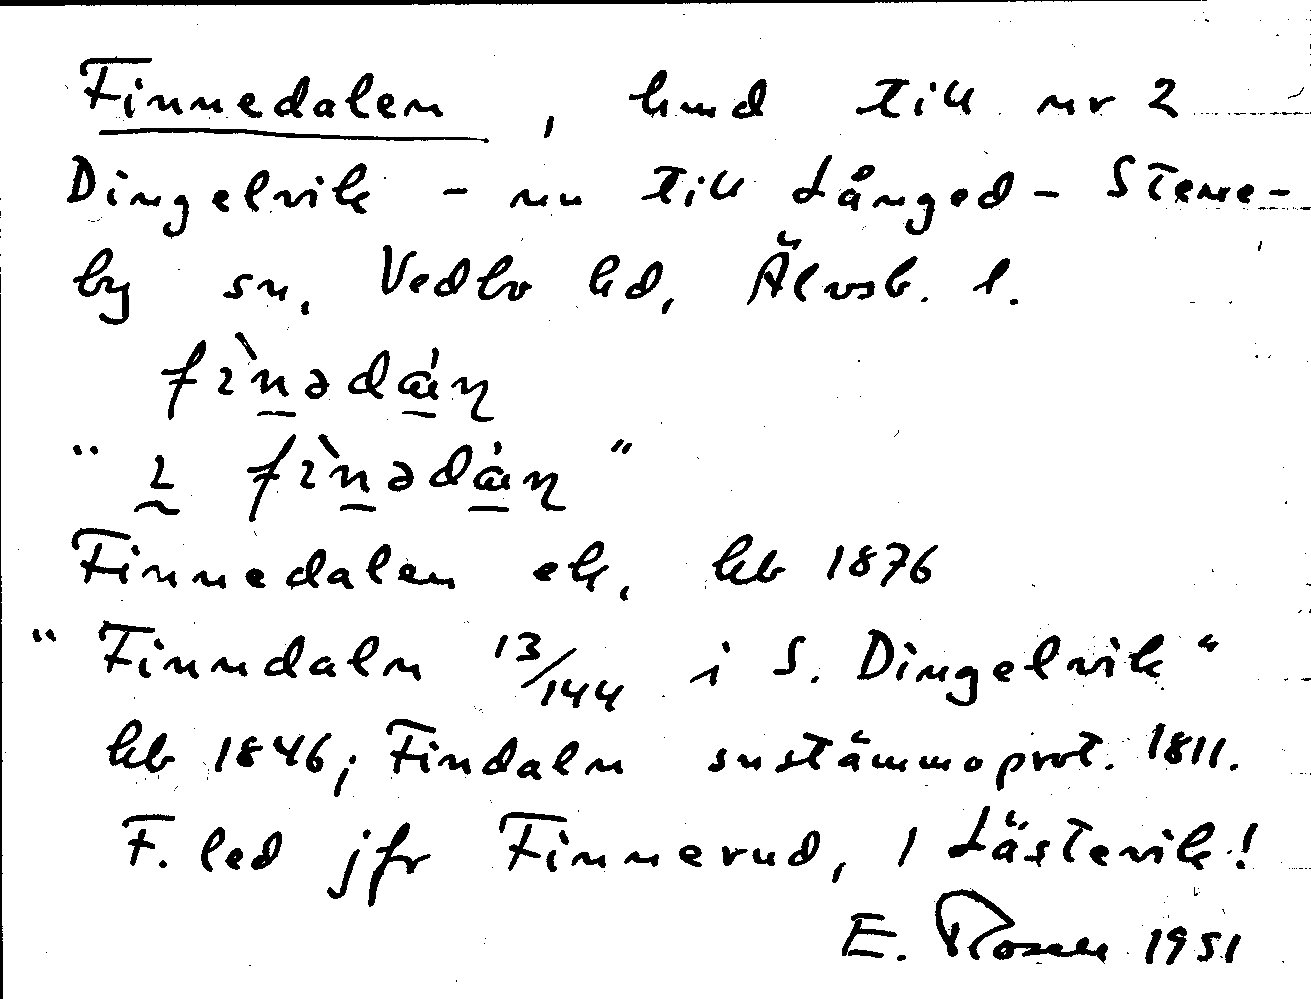 Finnedalen, hmd till nr 2
Dingelvik - nu till Långed - Stene-
by sn, Vedbo hd, Älvsb. l.
fìnədán
"ı fìnədán"
Finnedalen ek, kb 1876
"Finndaln 13/144 i S. Dingelvik"
kb 1846; Findaln snstämmoprot. 1811.
F. led jfr Finnerud, 1 Låstevik!
E. Rosen 1951